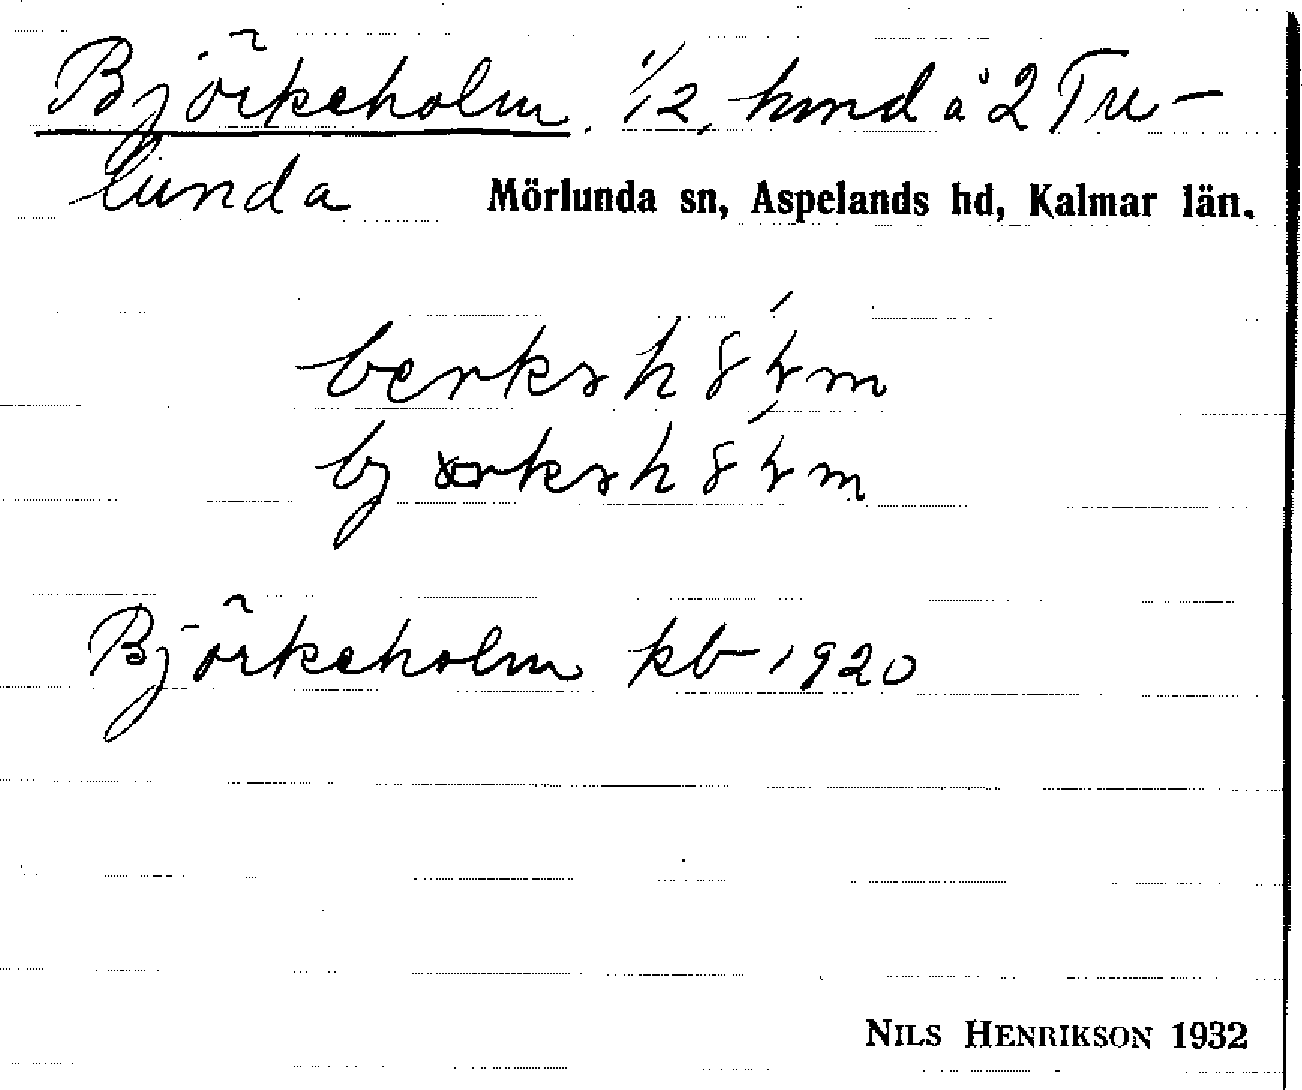 Björkeholm. 1/2, hmd å 2 Tre-
lunda Mörlunda sn, Aspelands hd, Kalmar län.
Björkeholm kb 1920
NILS HENRIKSON 1932